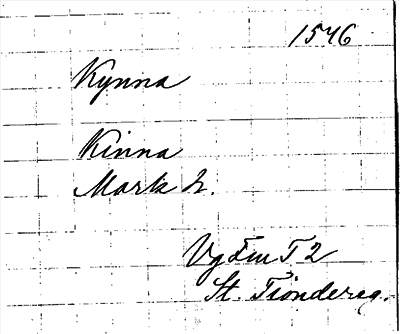 1546
Kynna
Kinna
Mark h.
Vg Fm T 2
St. Tiondereg.